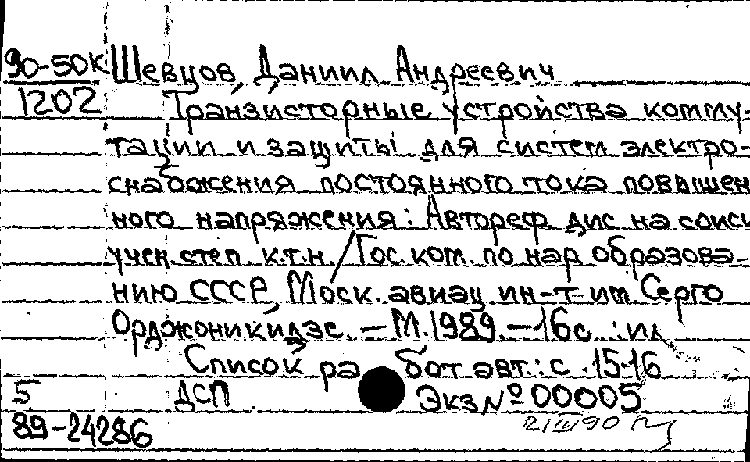 90-50к Шевцов, Даниил Андреевич
1202 Транзисторные устройства комму-
тации и защиты для систем электро-
снабжения постоянного тока повышен
ного напряжения: Автореф. дис на соиск
учен. степ. к.т.н. / Гос. ком. по нар образова-
нию СССР, Моск. авиац. ин-т им Серго
Орджоникидзе. – М. 1989. – 16с. : ил
Список работ авт.: с. 15-16
5 ДСП Экз № 00005
89-24286
21 III 90